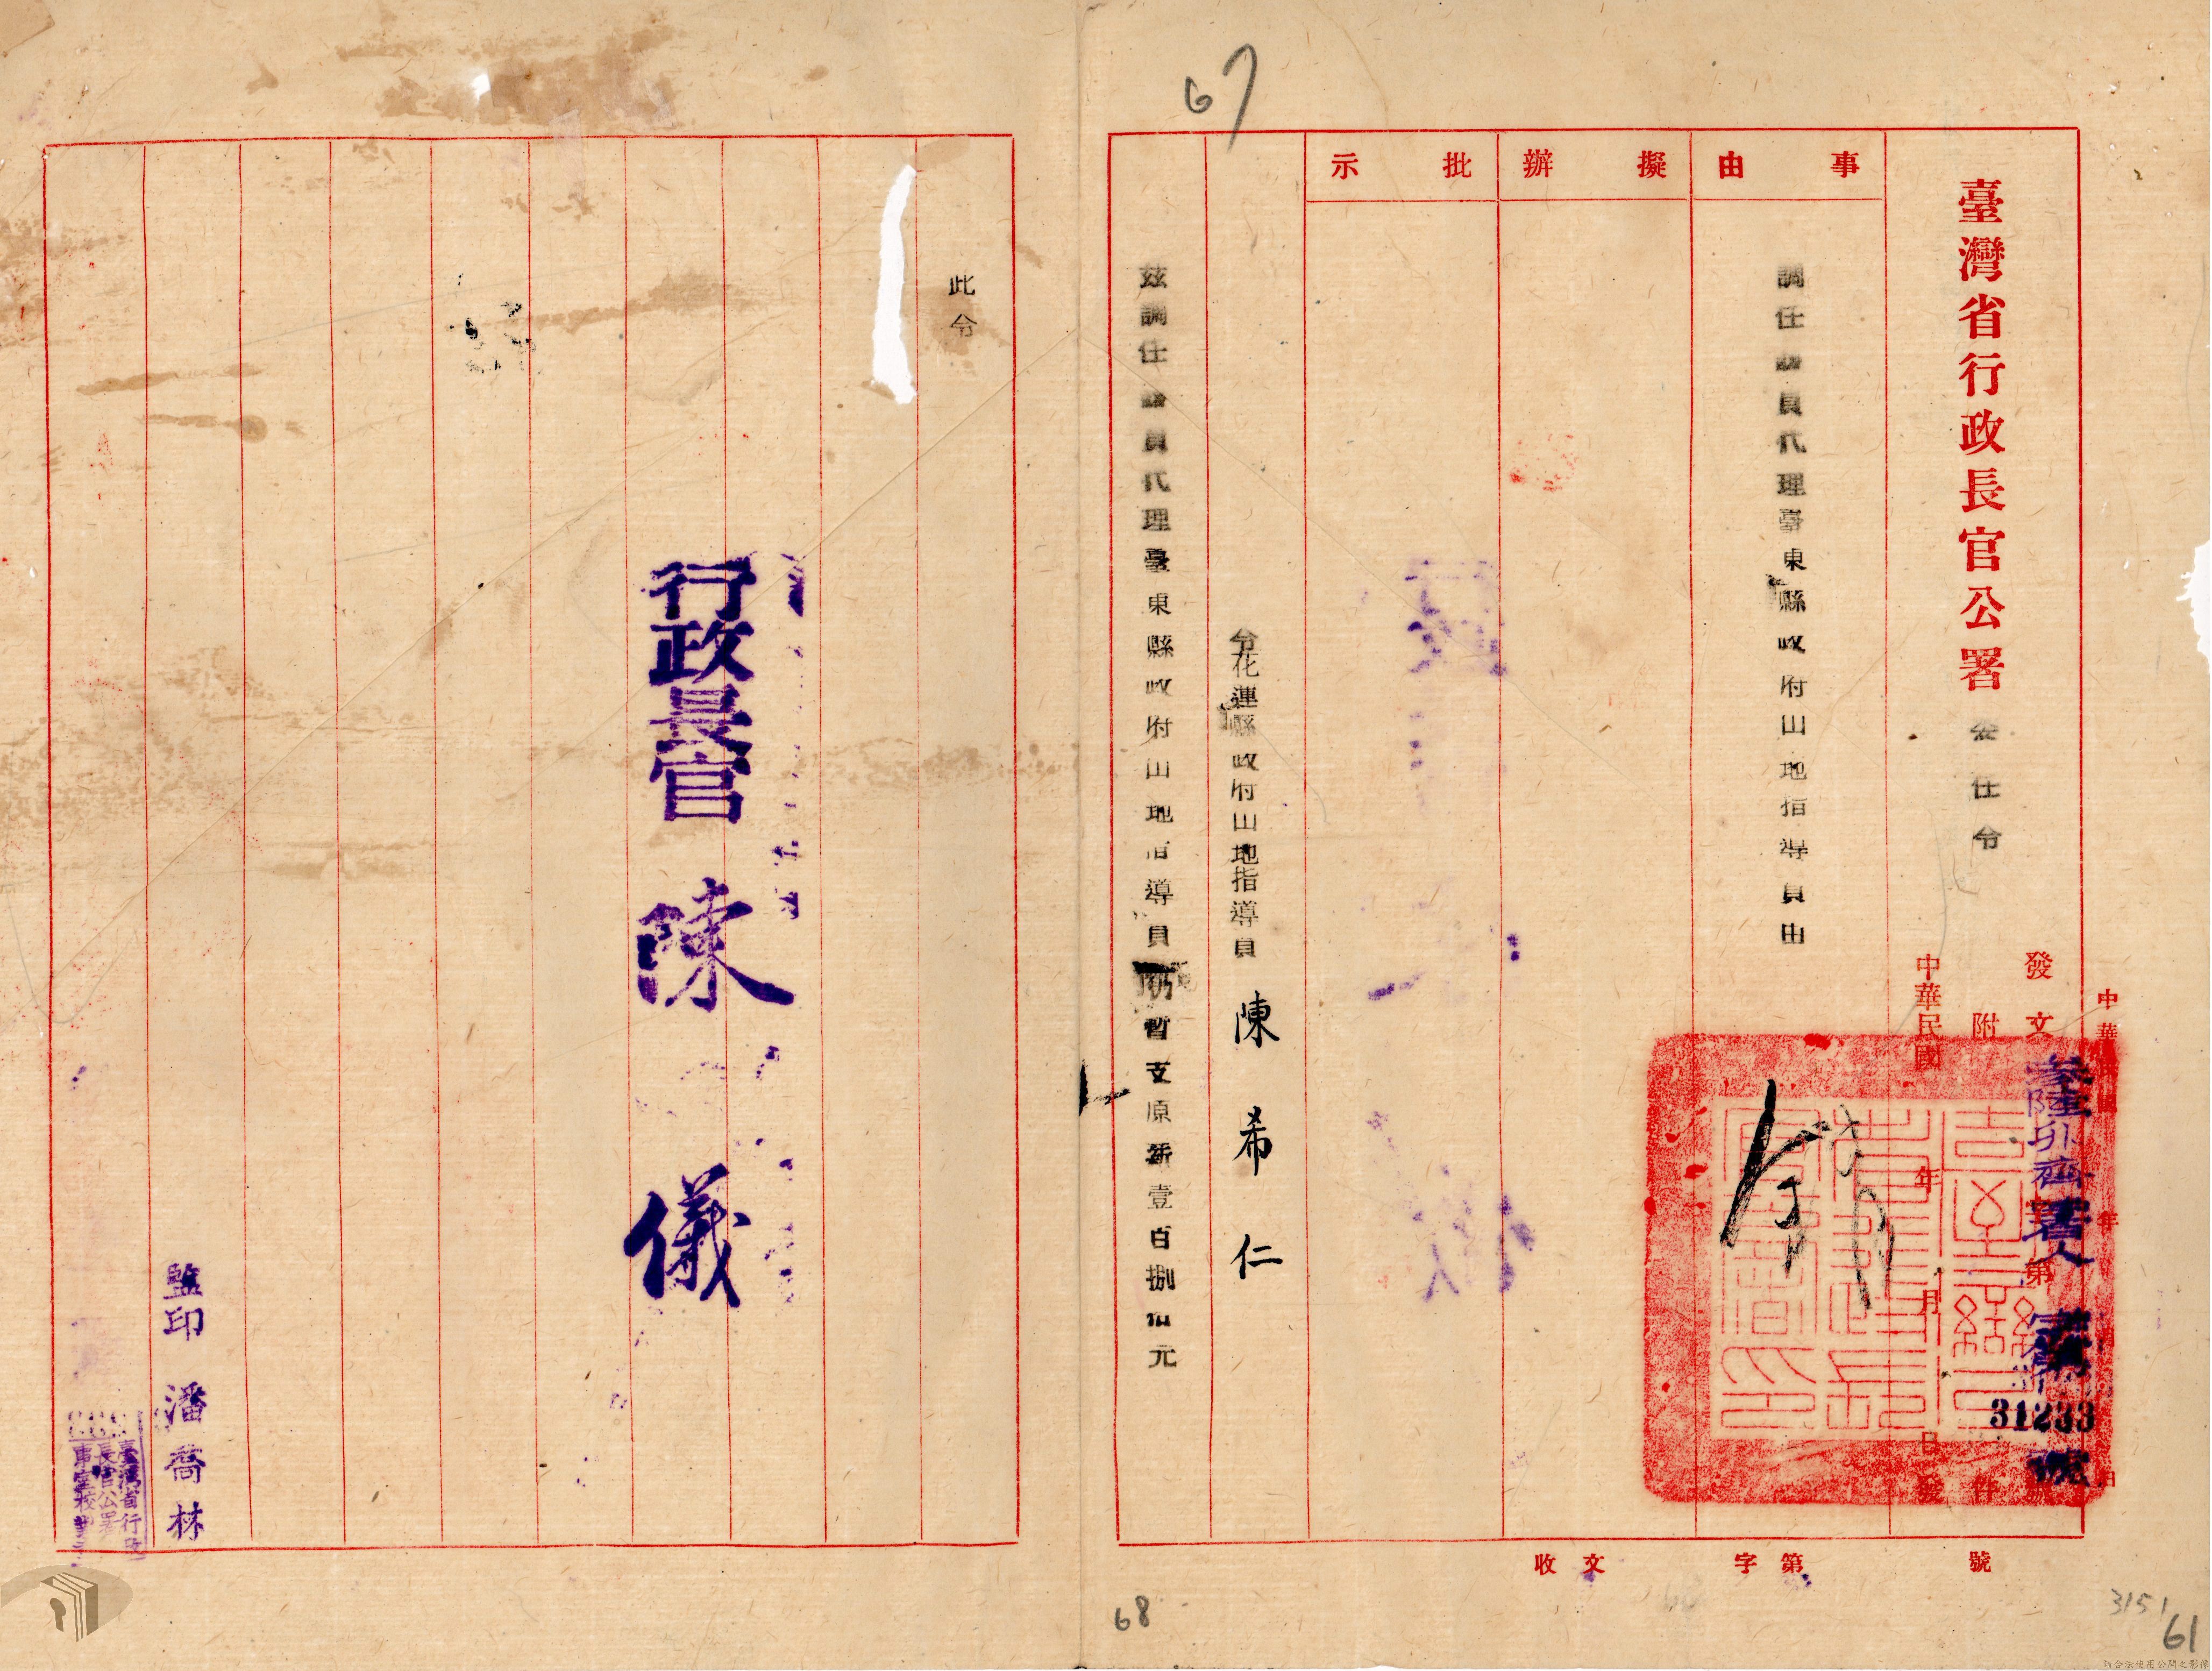 67
臺灣省行政長官公署 委任令
發文
附件
中華民國 年 月 日發
參陸卯齊署人
第
31233
號
事由
調任該員代理臺東縣政府山地指導員由
擬辦
批示
令花蓮縣政府山地指導員 陳希仁
茲調任該員代理臺東縣政府山地指導員仍暫支原薪壹百捌拾元
此令
行政長官 陳儀
監印 潘喬林
臺灣省行政
長官公署
收文 字第 號
68
3151
61
請合法使用公開之影像